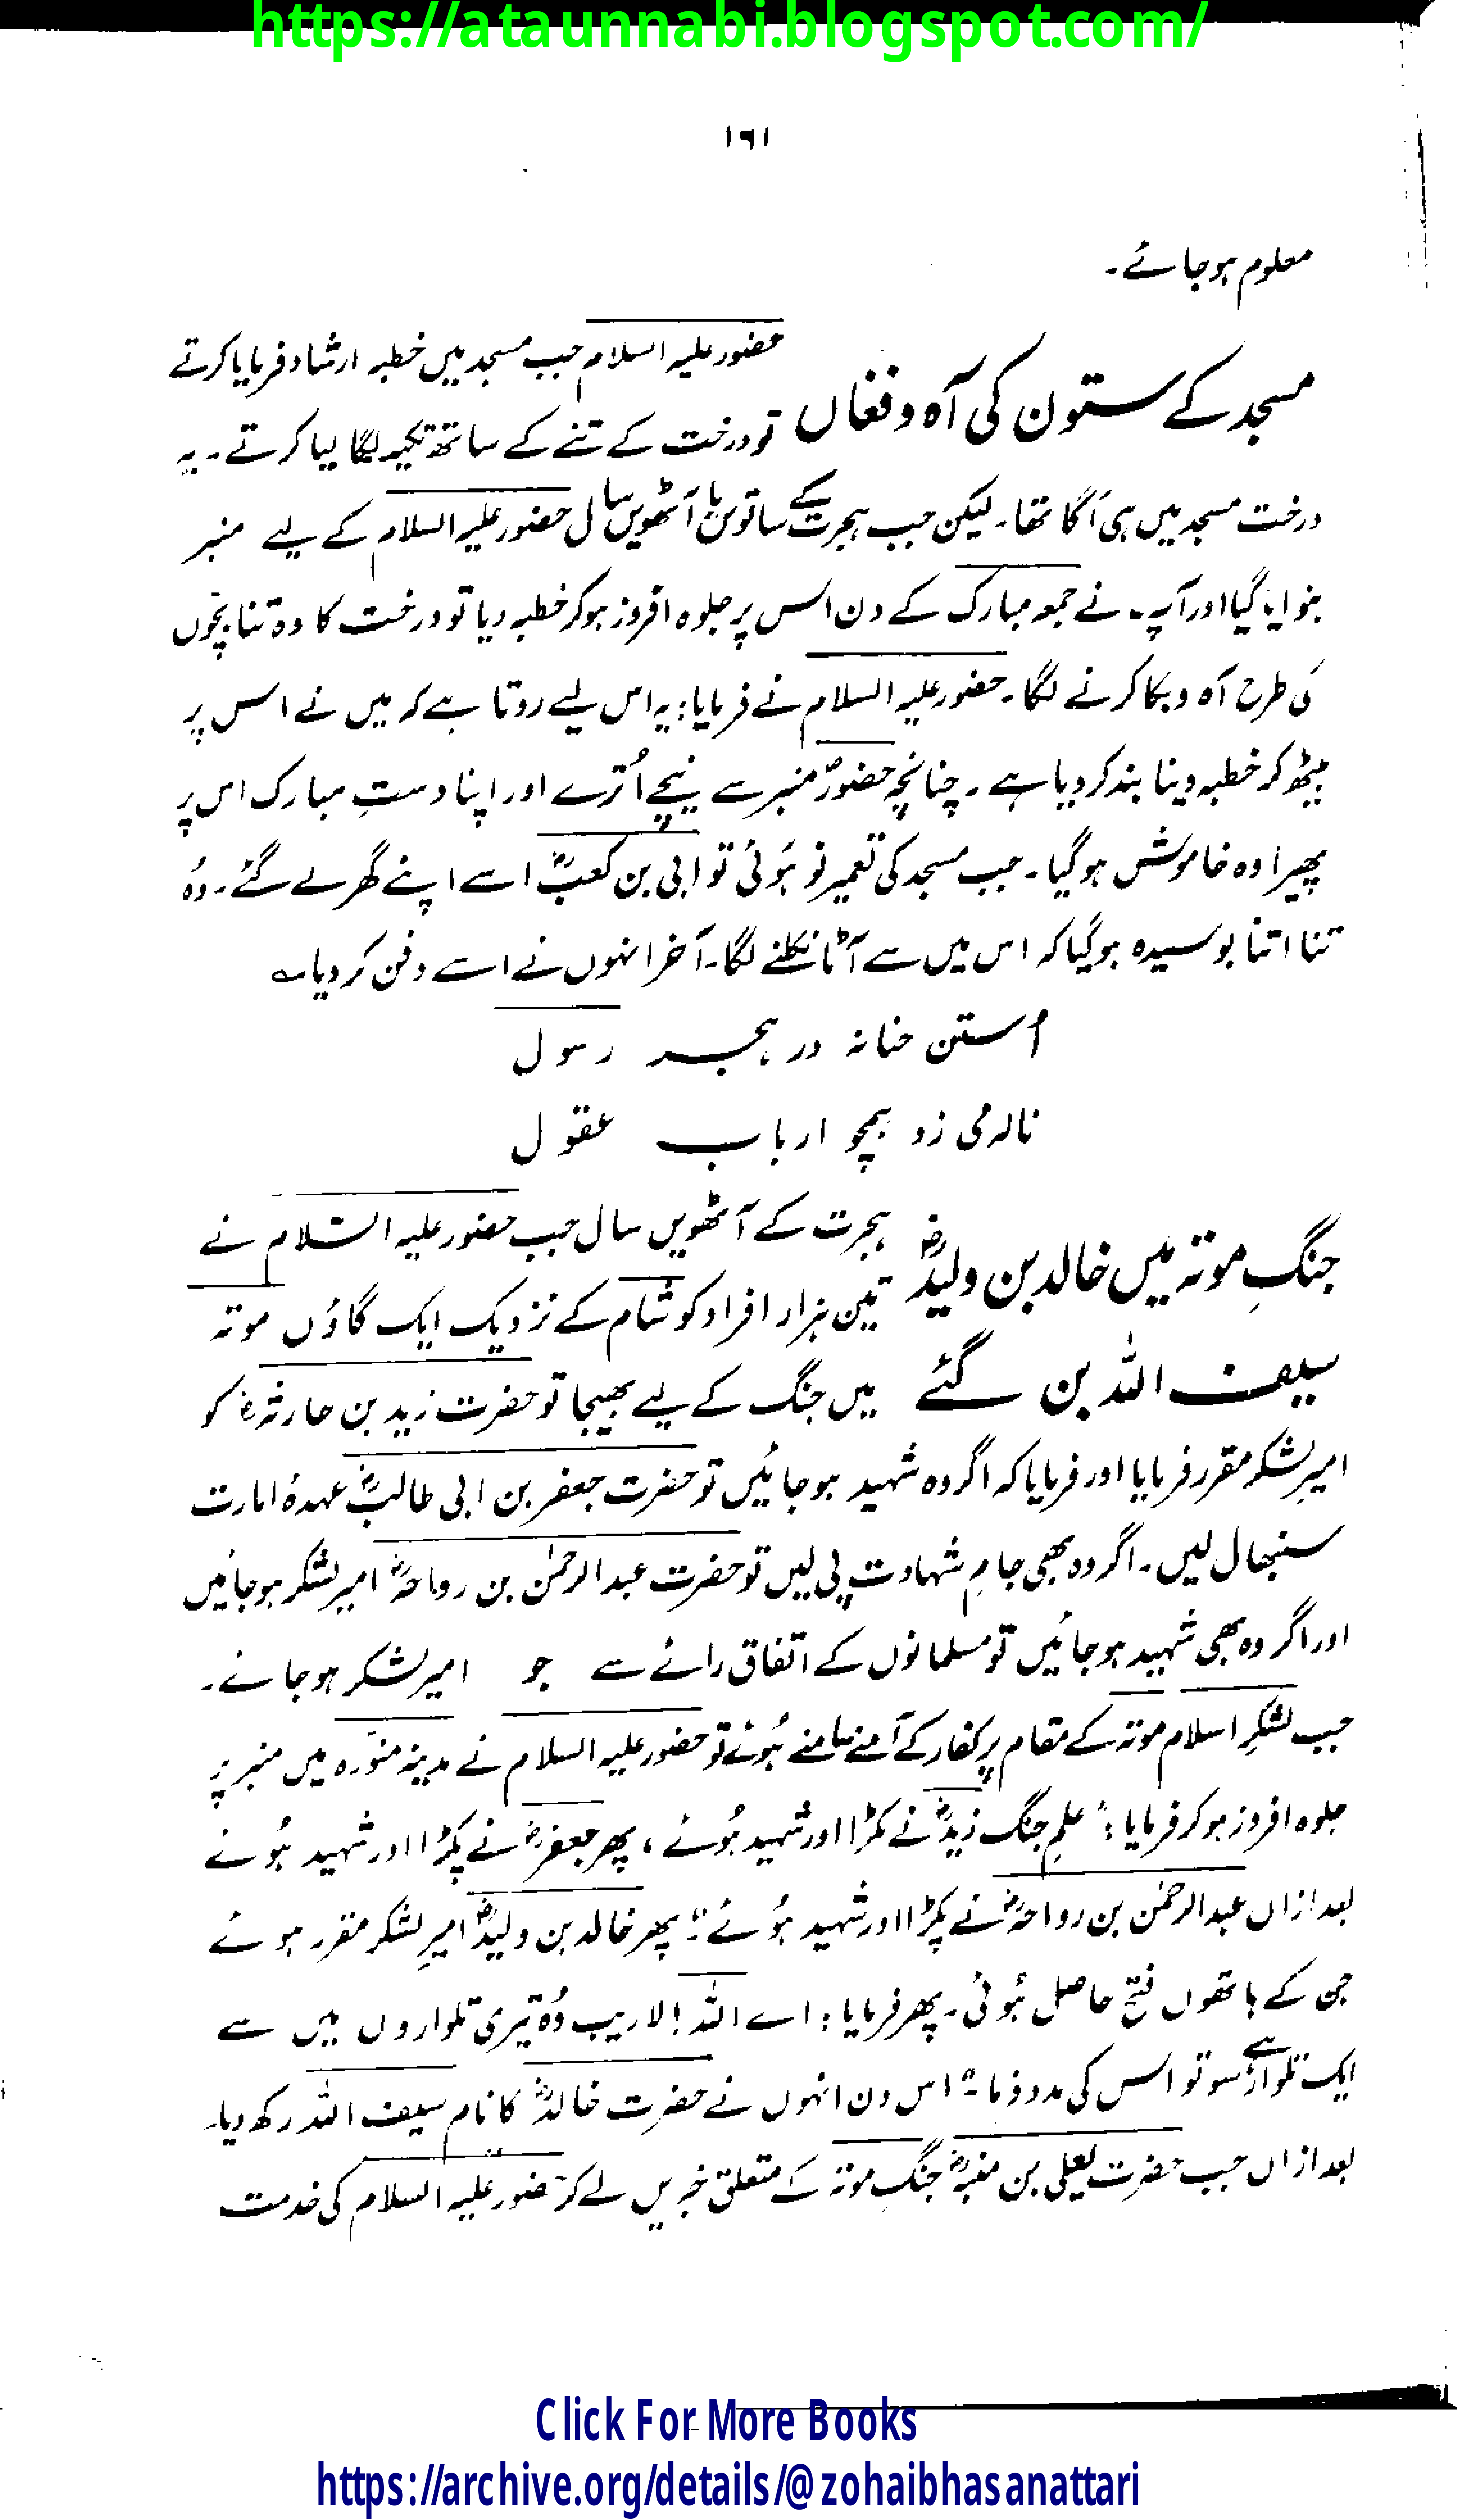 https://ataunnabi.blogspot.com/
۱۶۱
معلوم ہو جائے۔
مسجد کے ستون کی آہ و فغاں
حضور علیہ السلام جب مسجد میں خطبہ ارشاد فرمایا کرتے
تو درخت کے تنے کے ساتھ تکیہ لگا لیا کرتے۔ یہ
درخت مسجد میں ہی اُگا تھا۔ لیکن جب ہجرت کے ساتویں یا آٹھویں سال حضور علیہ السلام کے لیے منبر
بنوایا گیا اور آپ نے جمعہ مبارک کے دن اس پر جلوہ افروز ہو کر خطبہ دیا تو درخت کا وہ تنا بچّوں
کی طرح آہ و بکا کرنے لگا۔ حضور علیہ السلام نے فرمایا: یہ اس لیے روتا ہے کہ میں نے اس پر
بیٹھ کر خطبہ دینا بند کر دیا ہے۔ چنانچہ حضورؐ منبر سے نیچے اُترے اور اپنا دستِ مبارک اس پر
پھیرا وہ خاموش ہو گیا۔ جب مسجد کی تعمیر نو ہُوئی تو ابی بن کعبؓ اسے اپنے گھر لے گئے۔ وُہ
تنا اتنا بوسیدہ ہو گیا کہ اس میں سے آٹا نکلنے لگا۔ آخر انہوں نے اسے دفن کر دیا۔
اُستن حنانہ در ہجر رسول
نالہ می زد ہمچو ارباب عقول
جنگِ موتہ میں خالد بن ولیدؓ
سیف اللہ بن گئے
ہجرت کے آٹھویں سال جب حضور علیہ السّلام نے
تین ہزار افراد کو شام کے نزدیک ایک گاؤں موتہ
میں جنگ کے لیے بھیجا تو حضرت زید بن حارثہؓ کو
امیرِ لشکر مقرر فرمایا اور فرمایا کہ اگر وہ شہید ہو جائیں تو حضرت جعفر بن ابی طالبؓ عہدۂ امارت
سنبھال لیں۔ اگر وہ بھی جامِ شہادت پی لیں تو حضرت عبدالرحمٰن بن رواحہؓ امیر لشکر ہو جائیں
اور اگر وہ بھی شہید ہو جائیں تو مسلمانوں کے اتفاق رائے سے جو امیر لشکر ہو جائے۔
جب لشکرِ اسلام موتہ کے مقام پر کفار کے آمنے سامنے ہُوئے تو حضور علیہ السلام نے مدینہ منوّرہ میں منبر پر
جلوہ افروز ہو کر فرمایا: "علمِ جنگ زیدؓ نے پکڑا اور شہید ہُوئے، پھر جعفرؓ نے پکڑا اور شہید ہُوئے
بعد ازاں عبدالرحمٰن بن رواحہؓ نے پکڑا اور شہید ہُوئے" پھر خالد بن ولیدؓ امیرِ لشکر مقرر ہوئے
جن کے ہاتھوں فتح حاصل ہُوئی۔ پھر فرمایا: اے اللہ! لاریب وُہ تیری تلواروں میں سے
ایک تلوار ہے سو تو اس کی مدد فرما۔" اس دن انہوں نے حضرت خالدؓ کا نام سیف اللہ رکھ دیا۔
بعد ازاں جب حضرت یعلی بن منبہؓ جنگِ موتہ کے متعلق خبریں لے کر حضور علیہ السلام کی خدمت
Click For More Books
https://archive.org/details/@zohaibhasanattari